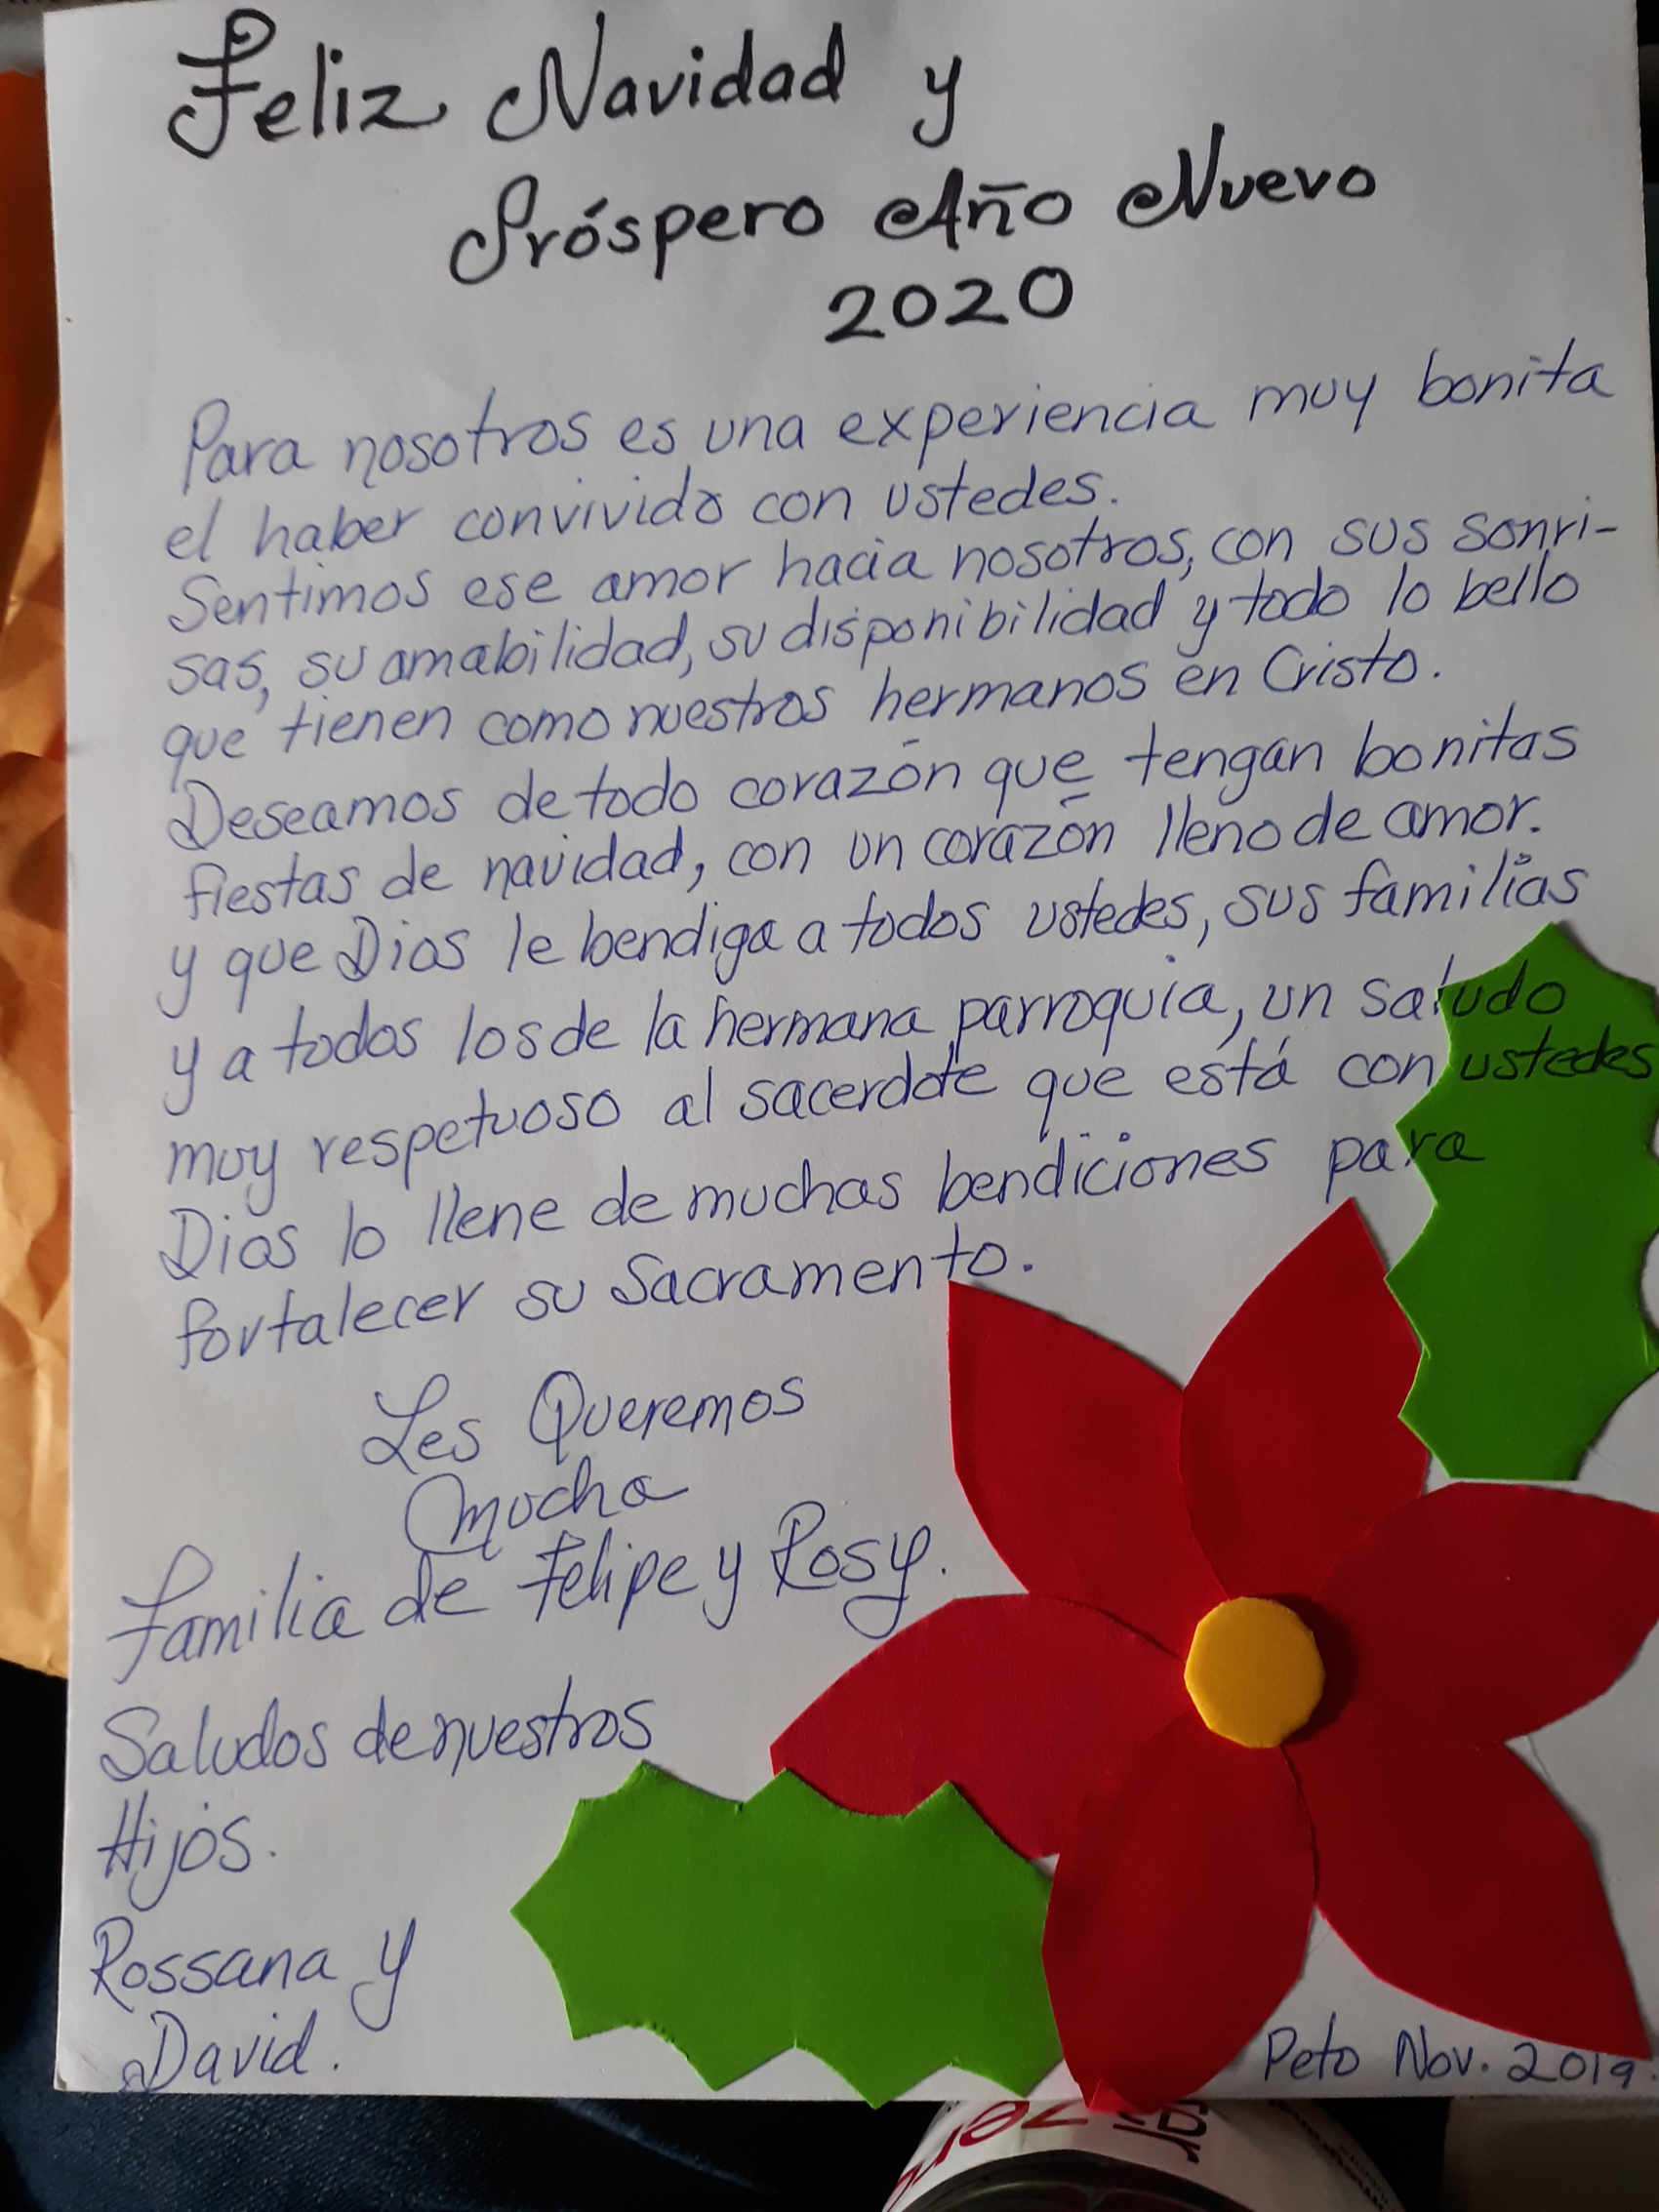 Feliz Navidad y
Próspero Año Nuevo
2020
Para nosotros es una experiencia muy bonita
el haber convivido con ustedes.
Sentimos ese amor hacia nosotros, con sus sonri-
sas, su amabilidad, su disponibilidad y todo lo bello
que tienen como nuestros hermanos en Cristo.
Deseamos de todo corazón que tengan bonitas
fiestas de navidad, con un corazón lleno de amor.
y que Dios le bendiga a todos ustedes, sus familias
y a todos los de la hermana parroquia, un saludo
muy respetuoso al sacerdote que está con ustedes
Dios lo llene de muchas bendiciones para
fortalecer su Sacramento.
Les Queremos
mucho
Familia de Felipe y Rosy.
Saludos de nuestros
Hijos.
Rossana y
David.
Peto Nov. 2019.